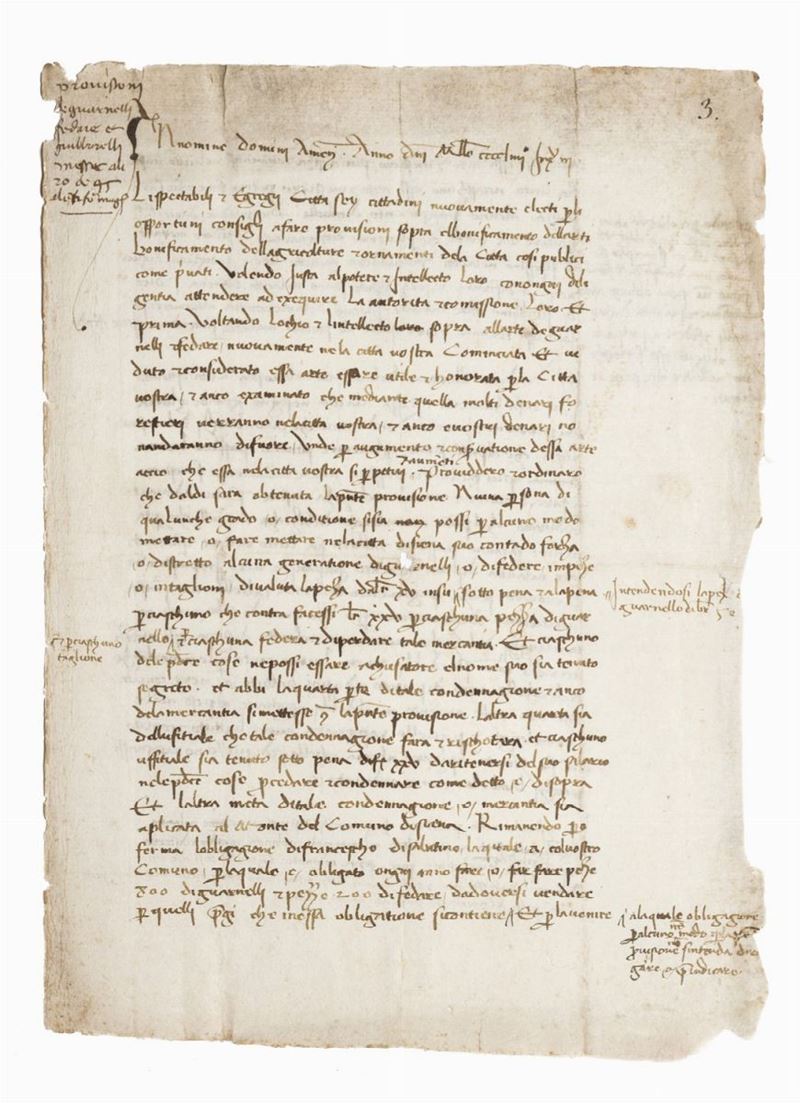 provisioni
de guarnelli
fedare et
3.
In nomine domini Amen. Anno dni Mllo cccclIII
Li spectabili & Egregi Citta sey cittadini nuovamente electi p li
opportuni consigli a fare provisioni sopra el bonificamento dellarti
bonificamento dellagricolture & ornamenti dela Citta cosi publici
come pivati. Volendo Justa al potere & Intellecto loro con ongni dili
gentia attendere ad exequire La autorita & comissione Loro. Et
prima. Voltando Lochio & lintellecto loro sopra allarte de guar
nelli & fedare, nuovamente ne la citta vostra Cominciata Et ve
duto & considerato essa arte essare utile & honorata p la Citta
vostra, & anco examinato che mediante quella molti denari fo
restieri verranno nela citta vostra, & anco e vostri denari no
nandaranno difuore, Unde p augumento & conservatione dessa arte
& aumeti
accio che essa nela citta vostra si ppetui. Providdero & ordinaro
che daldi sara obtenuta la pnte provisione Niuna psona di
qualunche grado o, conditione sisia non possi p alcuno modo
mettare o, fare mettare nela citta disiena suo contado forza
o, distretto alcuna generatione di gu nelli, o, di federe
o, intaglioni, di valuta la peza da xv insu, sotto pena & ala pena
Intendendosi la
guarnello di
p ciaschuno che contra facessi xxv p ciaschuna peza di guar
nello, & ciaschuna federa & di perdare tale mercantia. Et ciaschuno
& p ciaschuno
taglione
dele pdcte cose ne possi essare achusatore el nome suo sia tenuto
segreto. et abbi la quarta pte di tale condennagione & anco
dela mercantia si mettesse la pnte provisione. Laltra quarta sia
dellufitiale che tale condennagione fara & rischotara, et ciaschuno
uffitiale sia tenuto sotto pena di xxv da ritenersi del suo salario
nele pdcte cose pcedare & condennare come detto, e, di sopra
Et laltra meta di tale condennagione, o, mercantia sia
aplicata al Monte del Comuno di siena. Rimanendo po
ferma lobligagione di francescho di salutino, la quale, a, col vostro
Comuno, p la quale, e, obligato ongni anno fare, o, far fare peze
300 di guarnelli & peze 200 di fedare, da doversi vendare
p quelli pregi che in essa obligatione si contiene, Et p la venire
ala quale obligagione
p alcuno modo
provisione sintenda dero
gare, o pjudicare.